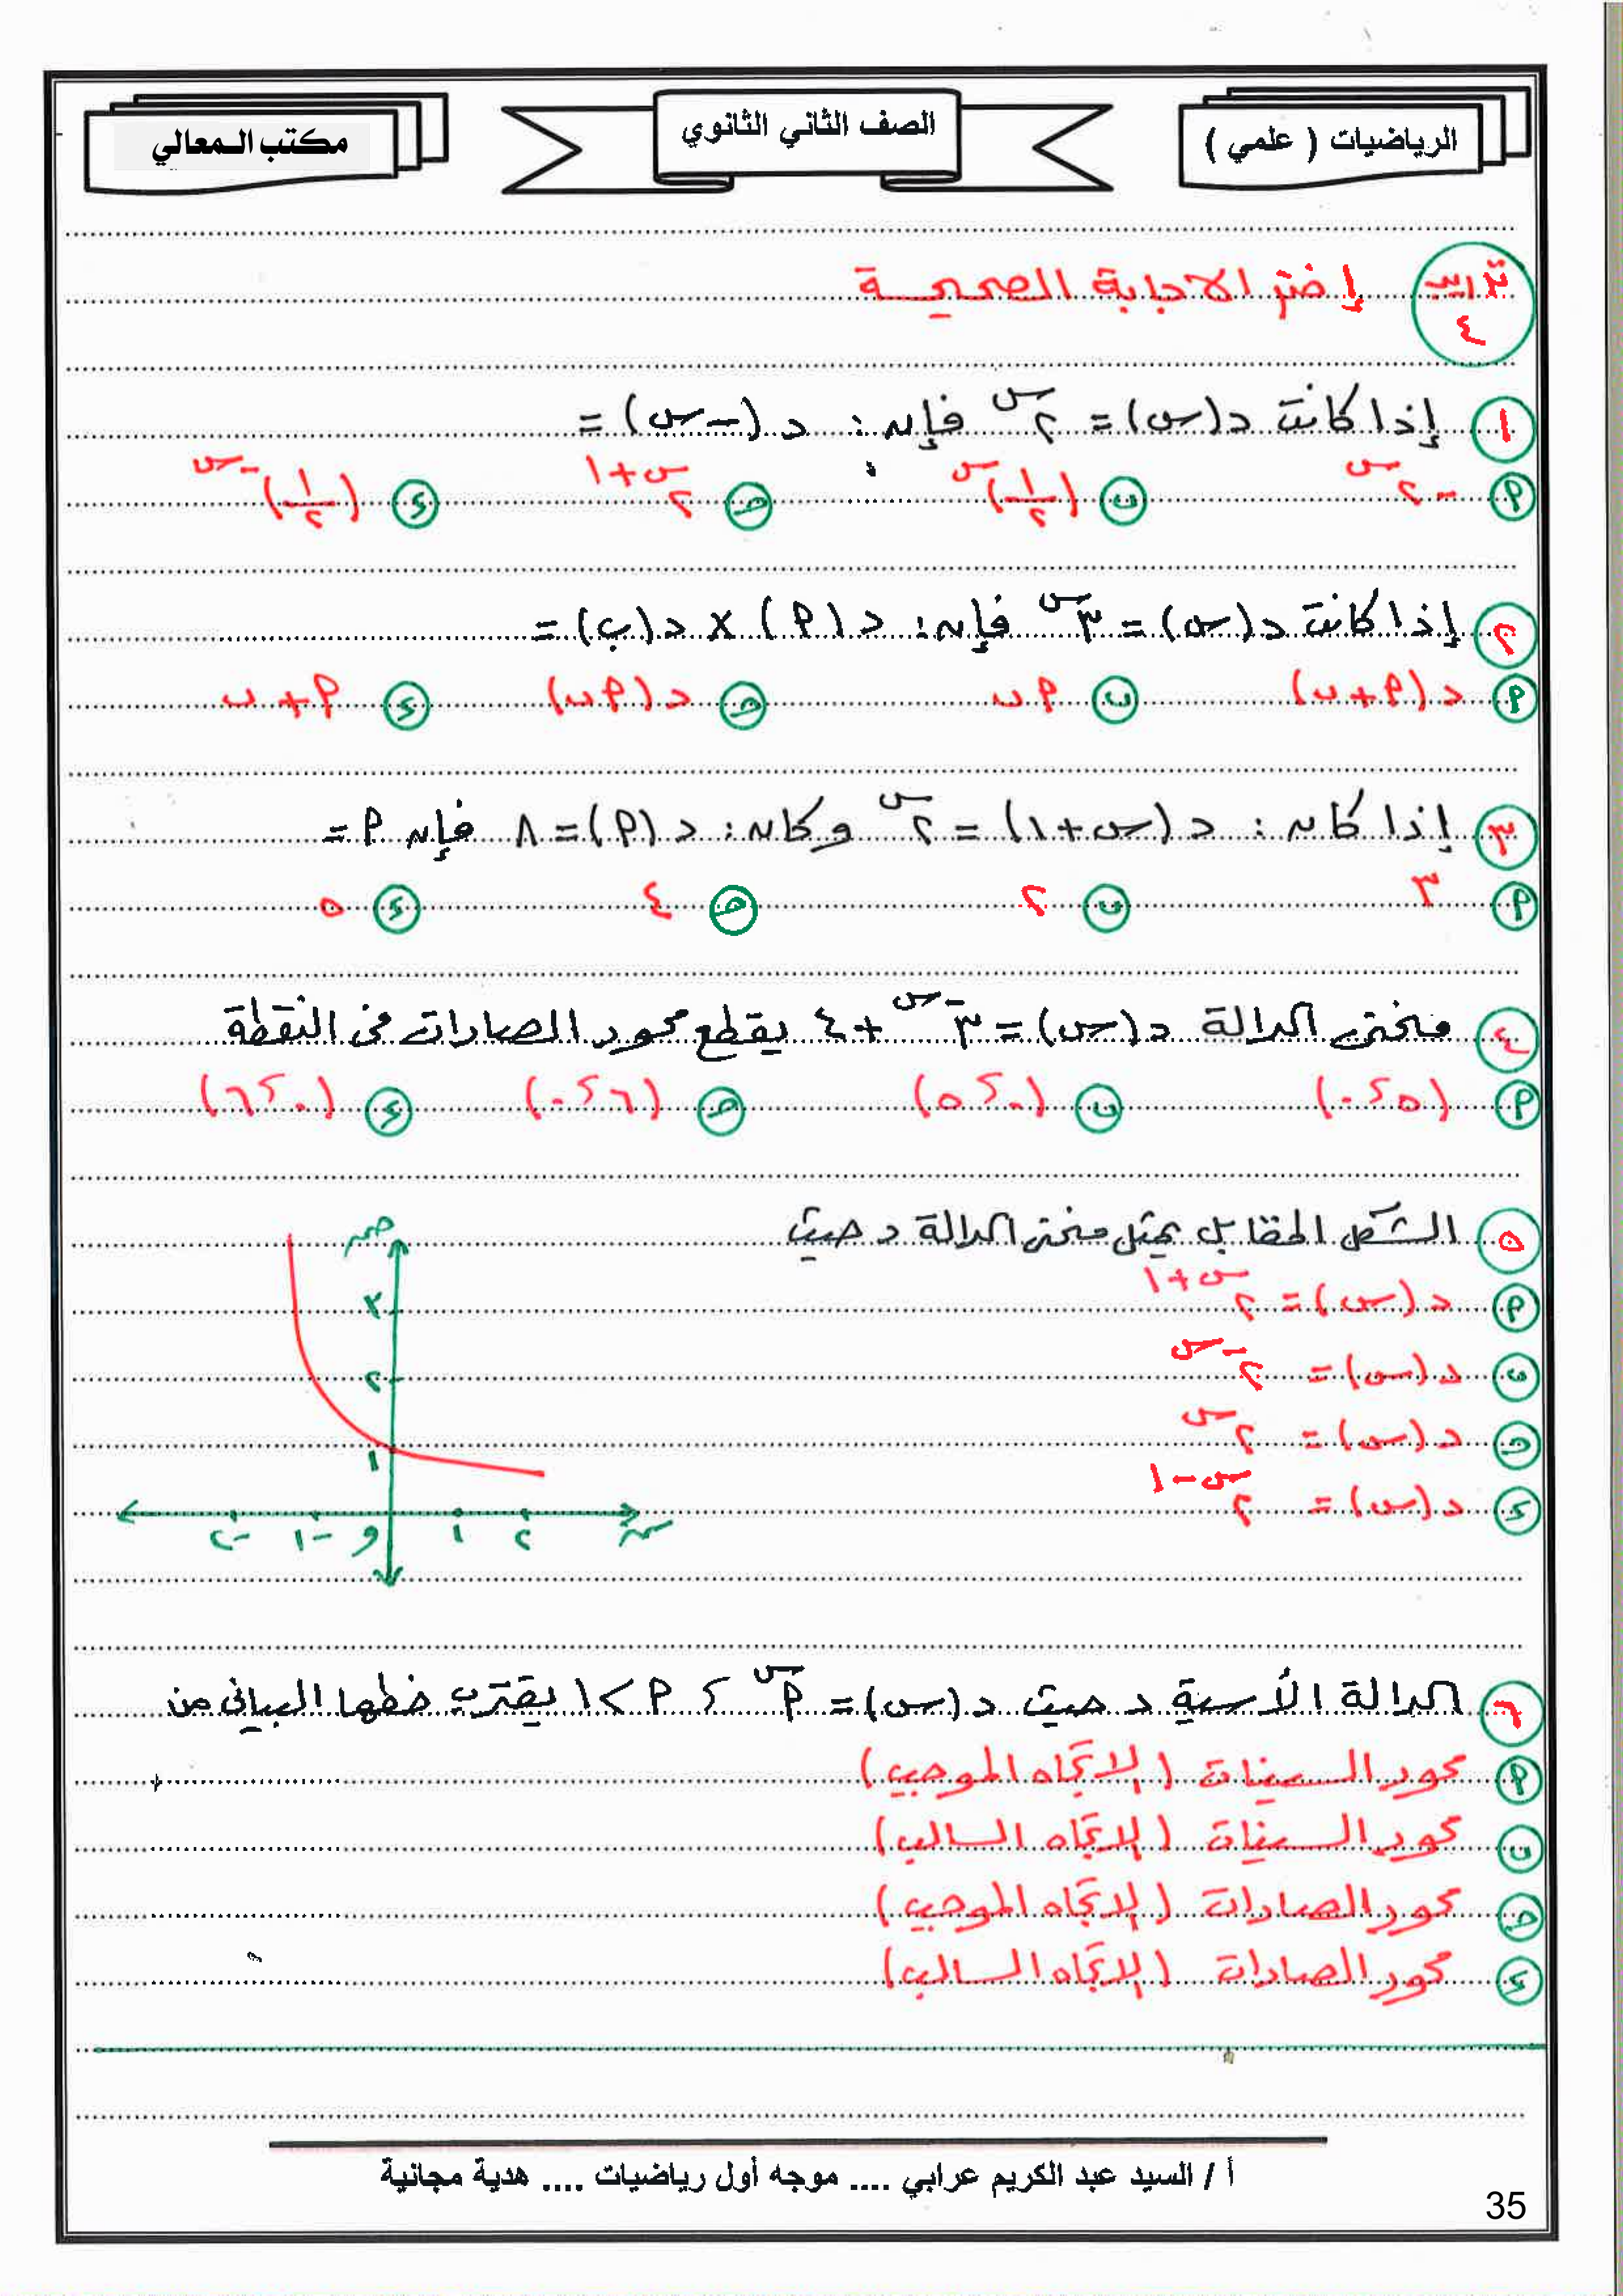 الرياضيات ( علمي )
الصف الثاني الثانوي
مكتب المعالي
تدريب ٤ إختر الاجابة الصحيحة
١ إذا كانت د(س) = ٢^س فإن : د(-س) =
أ -٢^س ب (١/٢)^س ج ٢^(س+١) د (١/٢)^(-س)
٢ إذا كانت د(س) = ٣^س فإن : د(أ) × د(ب) =
أ د(أ+ب) ب أب ج د(أب) د أ+ب
٣ إذا كان : د(س+١) = ٢^س وكان : د(أ) = ٨ فإن أ =
أ ٣ ب ٢ ج ٤ د ٥
٤ منحنى الدالة د(س) = ٣^(-س) + ٤ يقطع محور الصادات في النقطة
أ (٥ ، ٠) ب (٠ ، ٥) ج (٦ ، ٠) د (٠ ، ٦)
٥ الشكل المقابل يمثل منحنى الدالة د حيث
أ د(س) = ٢^(س+١)
ب د(س) = ٢^(-س)
ج د(س) = ٢^س
د د(س) = ٢^(س-١)
ص
٣
٢
١
-٢ -١ و ١ ٢ س
٦ الدالة الأسية د حيث د(س) = أ^س ، أ > ١ يقترب خطها البياني من
أ محور السينات (الاتجاه الموجب)
ب محور السينات (الاتجاه السالب)
ج محور الصادات (الاتجاه الموجب)
د محور الصادات (الاتجاه السالب)
أ / السيد عبد الكريم عرابي .... موجه أول رياضيات .... هدية مجانية
35